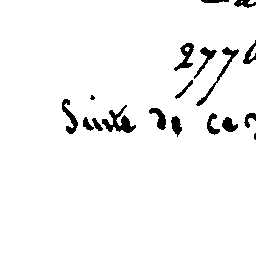 277
Suite de ce